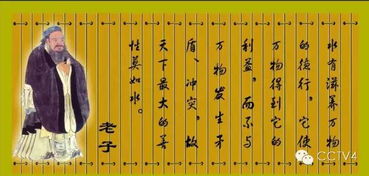 水有滋养万物
的德行。它使
万物得到它的
利益，而不与
万物发生矛
盾、冲突。故
天下最大的善
性莫如水。
老子
CCTV4